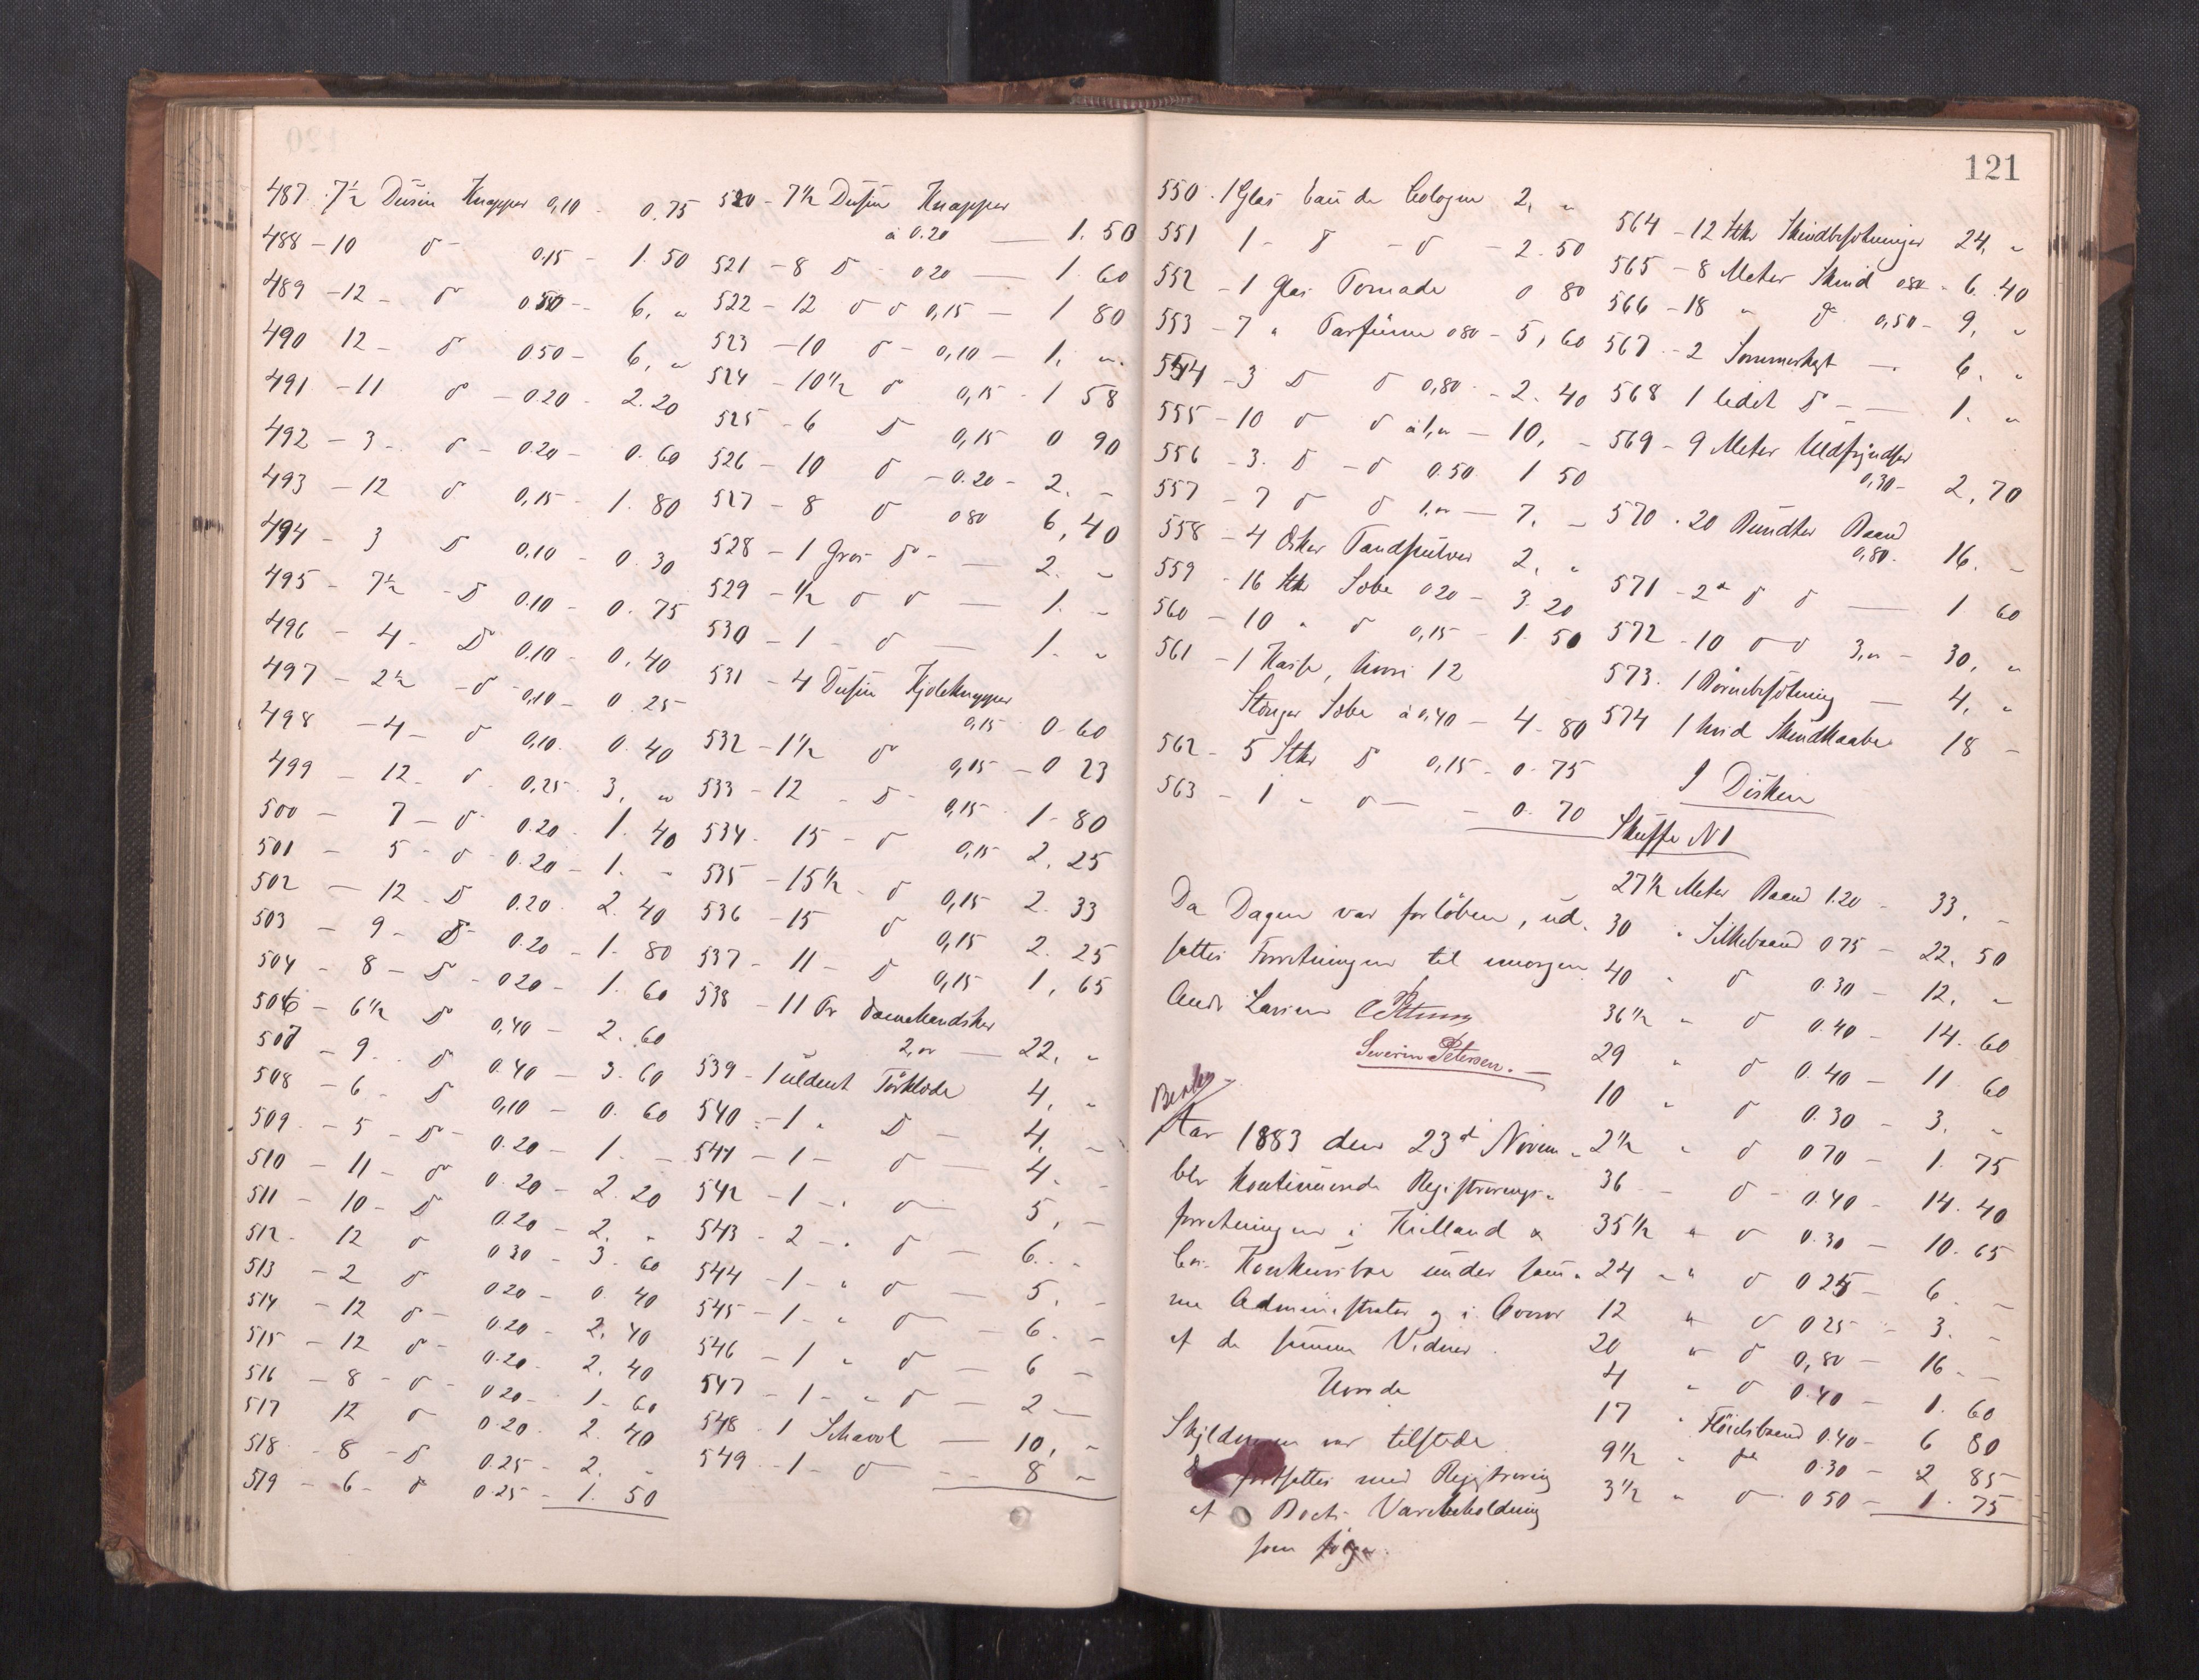 487. 7½ Dusin Knapper 0,10 - 0.75
488 - 10 d 0.15 - 1.50
489 - 12 - d 0.50 - 6, "
490 12 - d 0.50 - 6, "
491 - 11 d - 0.20 - 2.20
492 - 3 - d - 0.20 - 0.60
493 - 12 d 0,15 - 1.80
494 - 3 D 0.10 - 0.30
495 - 7½ - D 0.10 - 0.75
496 - 4 - D 0.10 - 0.40
497 - 2½ - d - 0,10 - 0 25
498 - 4 - d 0,10. 0.40
499 - 12 - d - 0,25. 3, "
500 - 7 - d - 0.20 - 1.40
501 - 5 - d - 0.20 - 1. -
502 - 12 D 0.20. 2.40
503 - 9 - D - 0.20 - 1.80
504 - 8 - D - 0 20 - 1.60
506 - 6½ D 0,40 - 2.60
507 - 9 .. d 0.40 - 3.60
508 - 6 - D 0,10 - 0.60
509 - 5 - D - 0.20 - 1. -
510 - 11 - d 0.20 - 2.20
511 - 10 - D 0.20 - 2. "
512 - 12 d 0 30 - 3.60
513 - 2 d 0 20 - 0.40
514 - 12 d - 0.20 - 2.40
515 - 12 d - 0.20 - 2.40
516 - 8 - d - 0 20 - 1.60
517 12 d 0.20. 2.40
518 - 8 - D 0.25 - 2. "
519 - 6 - d 0.25 - 1.50
520 - 7½ Dusin Knapper
à 0.20 — 1.50
521 - 8 D - 0 20 — 1.60
522 - 12 d d 0,15 - 1 80
523 - 10 d - 0,10 - 1. "
524 - 10½ d 0,15 - 1 58
525 - 6 D 0,15 0 90
526 - 10 d - 0.20 - 2. -
527 - 8 d 0 80 6,40
528 - 1 Gros D - — 2. "
529 - ½ d d — 1. "
530 - 1 - d — 1. "
531 - 4 Dusin Kjoleknapper
0,15 0.60
532 - 1½ d 0,15 - 0 23
533 - 12 - D - 0,15 1.80
534 - 15 - d 0,15 2.25
535 - 15½ - d 0,15 2.33
536 - 15 d 0,15 2.25
537 - 11 - D 0,15 1,65
538 - 11 Pr Damehandsker
2,00 — 22, "
539 - 1 uldent Tørklæde 4, "
540 - 1 " D - 4, -
541 - 1 - d — 4. -
542 - 1 - " d 5, -
543 - 2 - " d - 6. -
544 - 1 - " d - 5, -
545 - 1 - " d - 6. -
546 - 1 " d - 6 -
547 - 1 - " d - 2 -
548 - 1 Schavl — 10, "
549 - 1 - d — 8 "
121
550. 1 Glas Eau de Cologne 2, "
551 1 - D - d - 2.50
552 - 1 Glas Pomade 0 80
553 - 7 " Parfüme 0 80 - 5,60
554 - 3 D d 0,80 - 2.40
555 - 10 d d à 1,00 - 10, -
556 - 3. D - d 0.50 1 50
557 - 7 d d 1,00 - 7, -
558 - 4 Æsker Tandpulver 2, "
559 - 16 Stkr Sæbe 0 20 - 3.20
560 - 10 " d 0,15 - 1.50
561 - 1 Kasse, hvori 12
Stænger Sæbe à 0,40 - 4.80
562 - 5 Stkr D 0,15 - 0.75
563 - 1 - d — 0.70
Da Dagen var forløben, ud-
sattes Forretningen til imorgen
Andr Larsen
Severin Petersen.
Aar 1883 den 23d Novem-
ber kontinuerede Registrerings-
forretningen i Kielland &
Cos. Konkursbo under sam-
me Administrator og i Overvær
af de samme Vidner.
Hvorda
Skyldneren var tilstede
fortsattes med Registrering
af Boets Varebeholdning
som følger
564 - 12 Stkr Skindbesætninger 24, "
565 - 8 Meter Skind 0 80 - 6.40
566 - 18 " d 0,50 - 9, "
567 - 2 — 6, "
568 1 ledet D - — 1. "
569 - 9 Meter Uldfryndser
0,30 - 2,70
570 - 20 Bundter Baand
0,80. 16. -
571 - 2 d d — 1 60
572 - 10 d d 3,00 - 30, "
573. 1 — 4, "
574 1 hvid Skindkaabe 18 -
I Disken
Skuffe N 1
27½ Meter Baand 1.20 - 33. -
30 " Silkebaand 0 75 - 22.50
40 " d 0.30 - 12, "
36½ " d 0.40 - 14.60
29 " d 0.40 - 11 60
10 " d 0.30 - 3. -
2½ " d 0 70 - 1.75
36 - d - 0.40 - 14.40
35½ " d 0.30 - 10.65
24 " d 0 25 - 6 -
12 " d 0 25 - 3. -
20 " d 0,80 - 16 -
4 " d 0.40 - 1.60
17 " Fløielsbaand 0.40 - 6 80
9½ " d 0.30 - 2 85
3½ " d 0 50 - 1.75